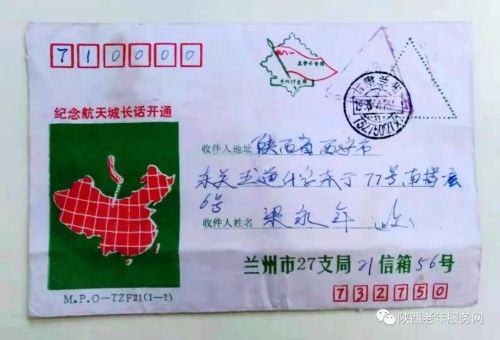 710000
纪念航天城长话开通
收件人地址 陕西省西安市
东关五道什字东于77号南楼二层
6号
收件人姓名 梁永年 收
兰州市27支局 21信箱56号
M.P.O—TZF21(1-1)
732750
陕西老年服务网